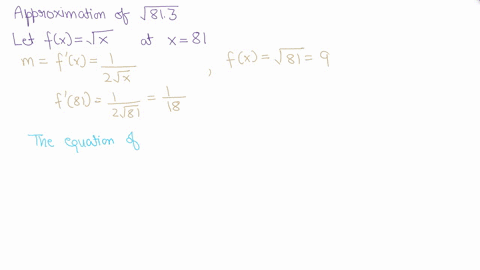 Approximation of √81.3
Let f(x)=√x at x=81
m = f'(x) = 1/2√x , f(x) = √81 = 9
f'(81) = 1/2√81 = 1/18
The equation of